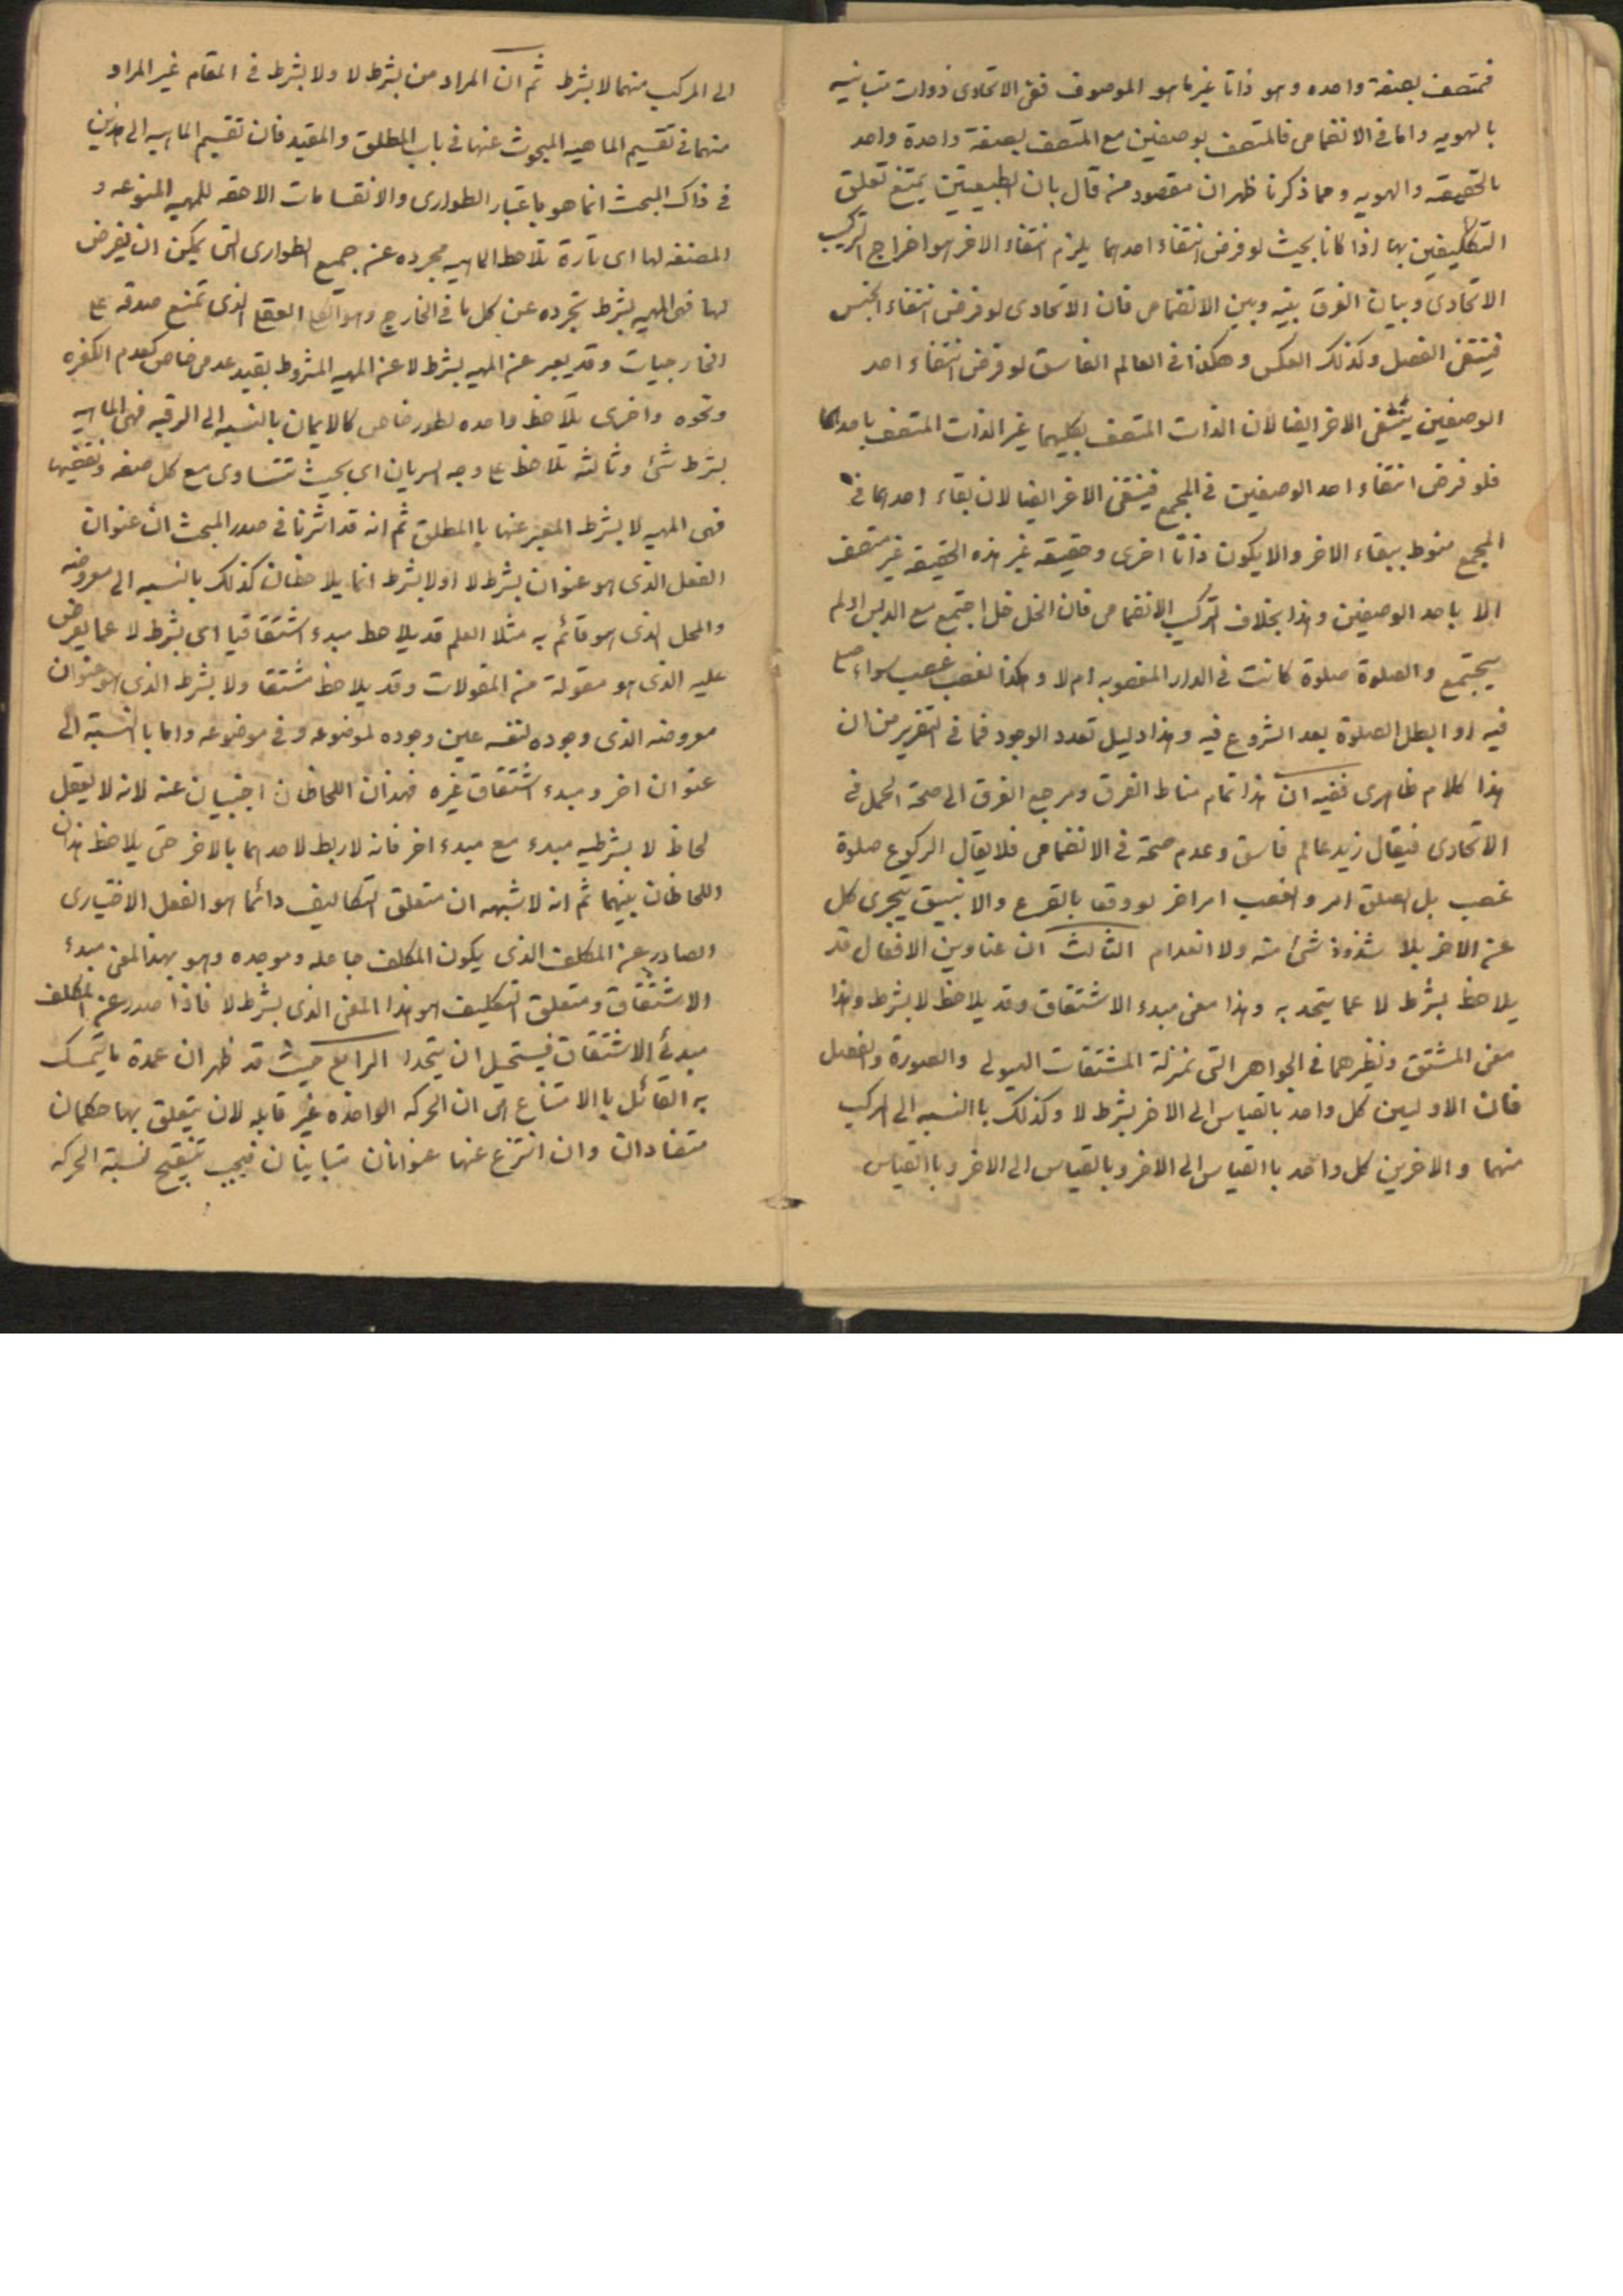 فمتصف بصفة واحده وهو ذاتا غير ما هو الموصوف ففى الاتحادى ذوات متباينه
بالهويه واما فى الانضمامى فالمتصف بوصفين مع المتصف بصفة واحدة واحد
بالحقيقه والهويه ومما ذكرنا ظهر ان مقصود من قال بان الطبيعتين يمتنع تعلق
التكليفين بها اذا كانا بحيث لو فرض انتفاء احدهما يلزم انتفاء الاخر هو اخراج التركيب
الاتحادى وبيان الفرق بينه وبين الانضمامى فان الاتحادى لو فرض انتفاء الجنس
فينتفى الفصل وكذلك العكس وهكذا فى العالم الفاسق لو فرض انتفاء احد
الوصفين ينتفى الاخر ايضا لان الذات المتصف بكليهما غير الذات المتصف باحدهما
فلو فرض انتفاء احد الوصفين فى المجمع فينتفى الاخر ايضا لان بقاء احدهما فى
المجمع منوط ببقاء الاخر والا يكون ذاتا اخرى وحقيقه غير هذه الحقيقه غير متصف
الا باحد الوصفين وهذا بخلاف التركيب الانضمامى فان الخل خل اجتمع مع الدبس او لم
يجتمع والصلوة صلوة كانت فى الدار المغصوبه ام لا وهكذا الغصب غصب سواء صلى
فيه او ابطل الصلوة بعد الشروع فيه وهذا دليل تعدد الوجود فما فى التقرير من ان
هذا كلام ظاهرى ففيه ان هذا تمام مناط الفرق ومرجع الفرق الى صحة الحمل فى
الاتحادى فيقال زيد عالم فاسق وعدم صحته فى الانضمامى فلا يقال الركوع صلوة
غصب بل الصلوة امر والغصب امر اخر لو وقعا بالقرع والانبيق يتجرى كل
عن الاخر بلا شذوذ شئ منه ولا انعدام الثالث ان عناوين الافعال قد
يلاحظ بشرط لا عما يتحد به وهذا معنى مبدء الاشتقاق وقد يلاحظ لا بشرط وهذا
معنى المشتق ونظيرهما فى الجواهر التى بمنزلة المشتقات الهيولى والصورة والفصل
فان الاوليين كل واحد بالقياس الى الاخر بشرط لا وكذلك باالنسبه الى المركب
منهما والاخرين كل واحد باالقياس الى الاخر وبالقياس الى الاخر وباالقياس
الى المركب منهما لا بشرط ثم ان المراد من بشرط لا ولا بشرط فى المقام غير المراد
منهما فى تقسيم الماهيه المبحوث عنها فى باب المطلق والمقيد فان تقسيم الماهيه الى هذين
فى ذاك البحث انما هو باعتبار الطوارى والانقسامات الاحقه للمهيه المنوعه و
المصنفه لها اى تارة تلاحظ الماهيه مجرده عن جميع الطوارى التى يمكن ان يفرض
لها فهى المهيه بشرط تجرده عن كل ما فى الخارج وهو الكلى العقلى الذى تمنع صدقه على
الخارجيات وقد يعبر عن المهيه بشرط لا عن المهيه المشروط بقيد عدمى خاص كعدم الكفره
ونحوه واخرى يلاحظ واحده بطور خاص كالايمان بالنسبه الى الرقبه فهى الماهيه
بشرط شئ وثالثه تلاحظ على وجه السريان اى بحيث تتساوى مع كل صفه ونقيضها
فهى المهيه لا بشرط المعبر عنها باالمطلق ثم انه قد اشرنا فى صدر المبحث ان عنوان
الفعل الذى هو عنوان بشرط لا او لا بشرط انما يلاحظان كذلك بالنسبه الى معروضه
والمحل الذى هو قائم به مثلا العلم قد يلاحظ مبدء اشتقاقيا اى بشرط لا عما يعرض
عليه الذى هو مقولة من المقولات وقد يلاحظ مشتقا ولا بشرط الذى هو عنوان
معروضه الذى وجوده لنفسه عين وجوده لموضوعه وفى موضوعه واما باالنسبة الى
عنوان اخر ومبدء اشتقاق غيره فهذان اللحاظان اجنبيان عنه لانه لا يعقل
لحاظ لا بشرطيه مبدء مع مبدء اخر فانه لا ربط لاحدهما بالاخر حتى يلاحظ هذان
اللحاظان بينهما ثم انه لا شبهه ان متعلق التكاليف دائما هو الفعل الاختيارى
الصادر عن المكلف الذى يكون المكلف جاعله وموجده وهو بهذا المعنى مبدء
الاشتقاق ومتعلق التكليف هو هذا المعنى الذى بشرط لا فاذا صدر عن المكلف
مبدئى الاشتقاق فيستحيل ان يتحدا الرابع حيث قد ظهر ان عمدة ما يتمسك
به القائل باالامتناع هى ان الحركه الواحده غير قابله لان يتعلق بها حكمان
متضادان وان انتزع عنها عنوانان متباينان فيجب تنقيح نسبة الحركه